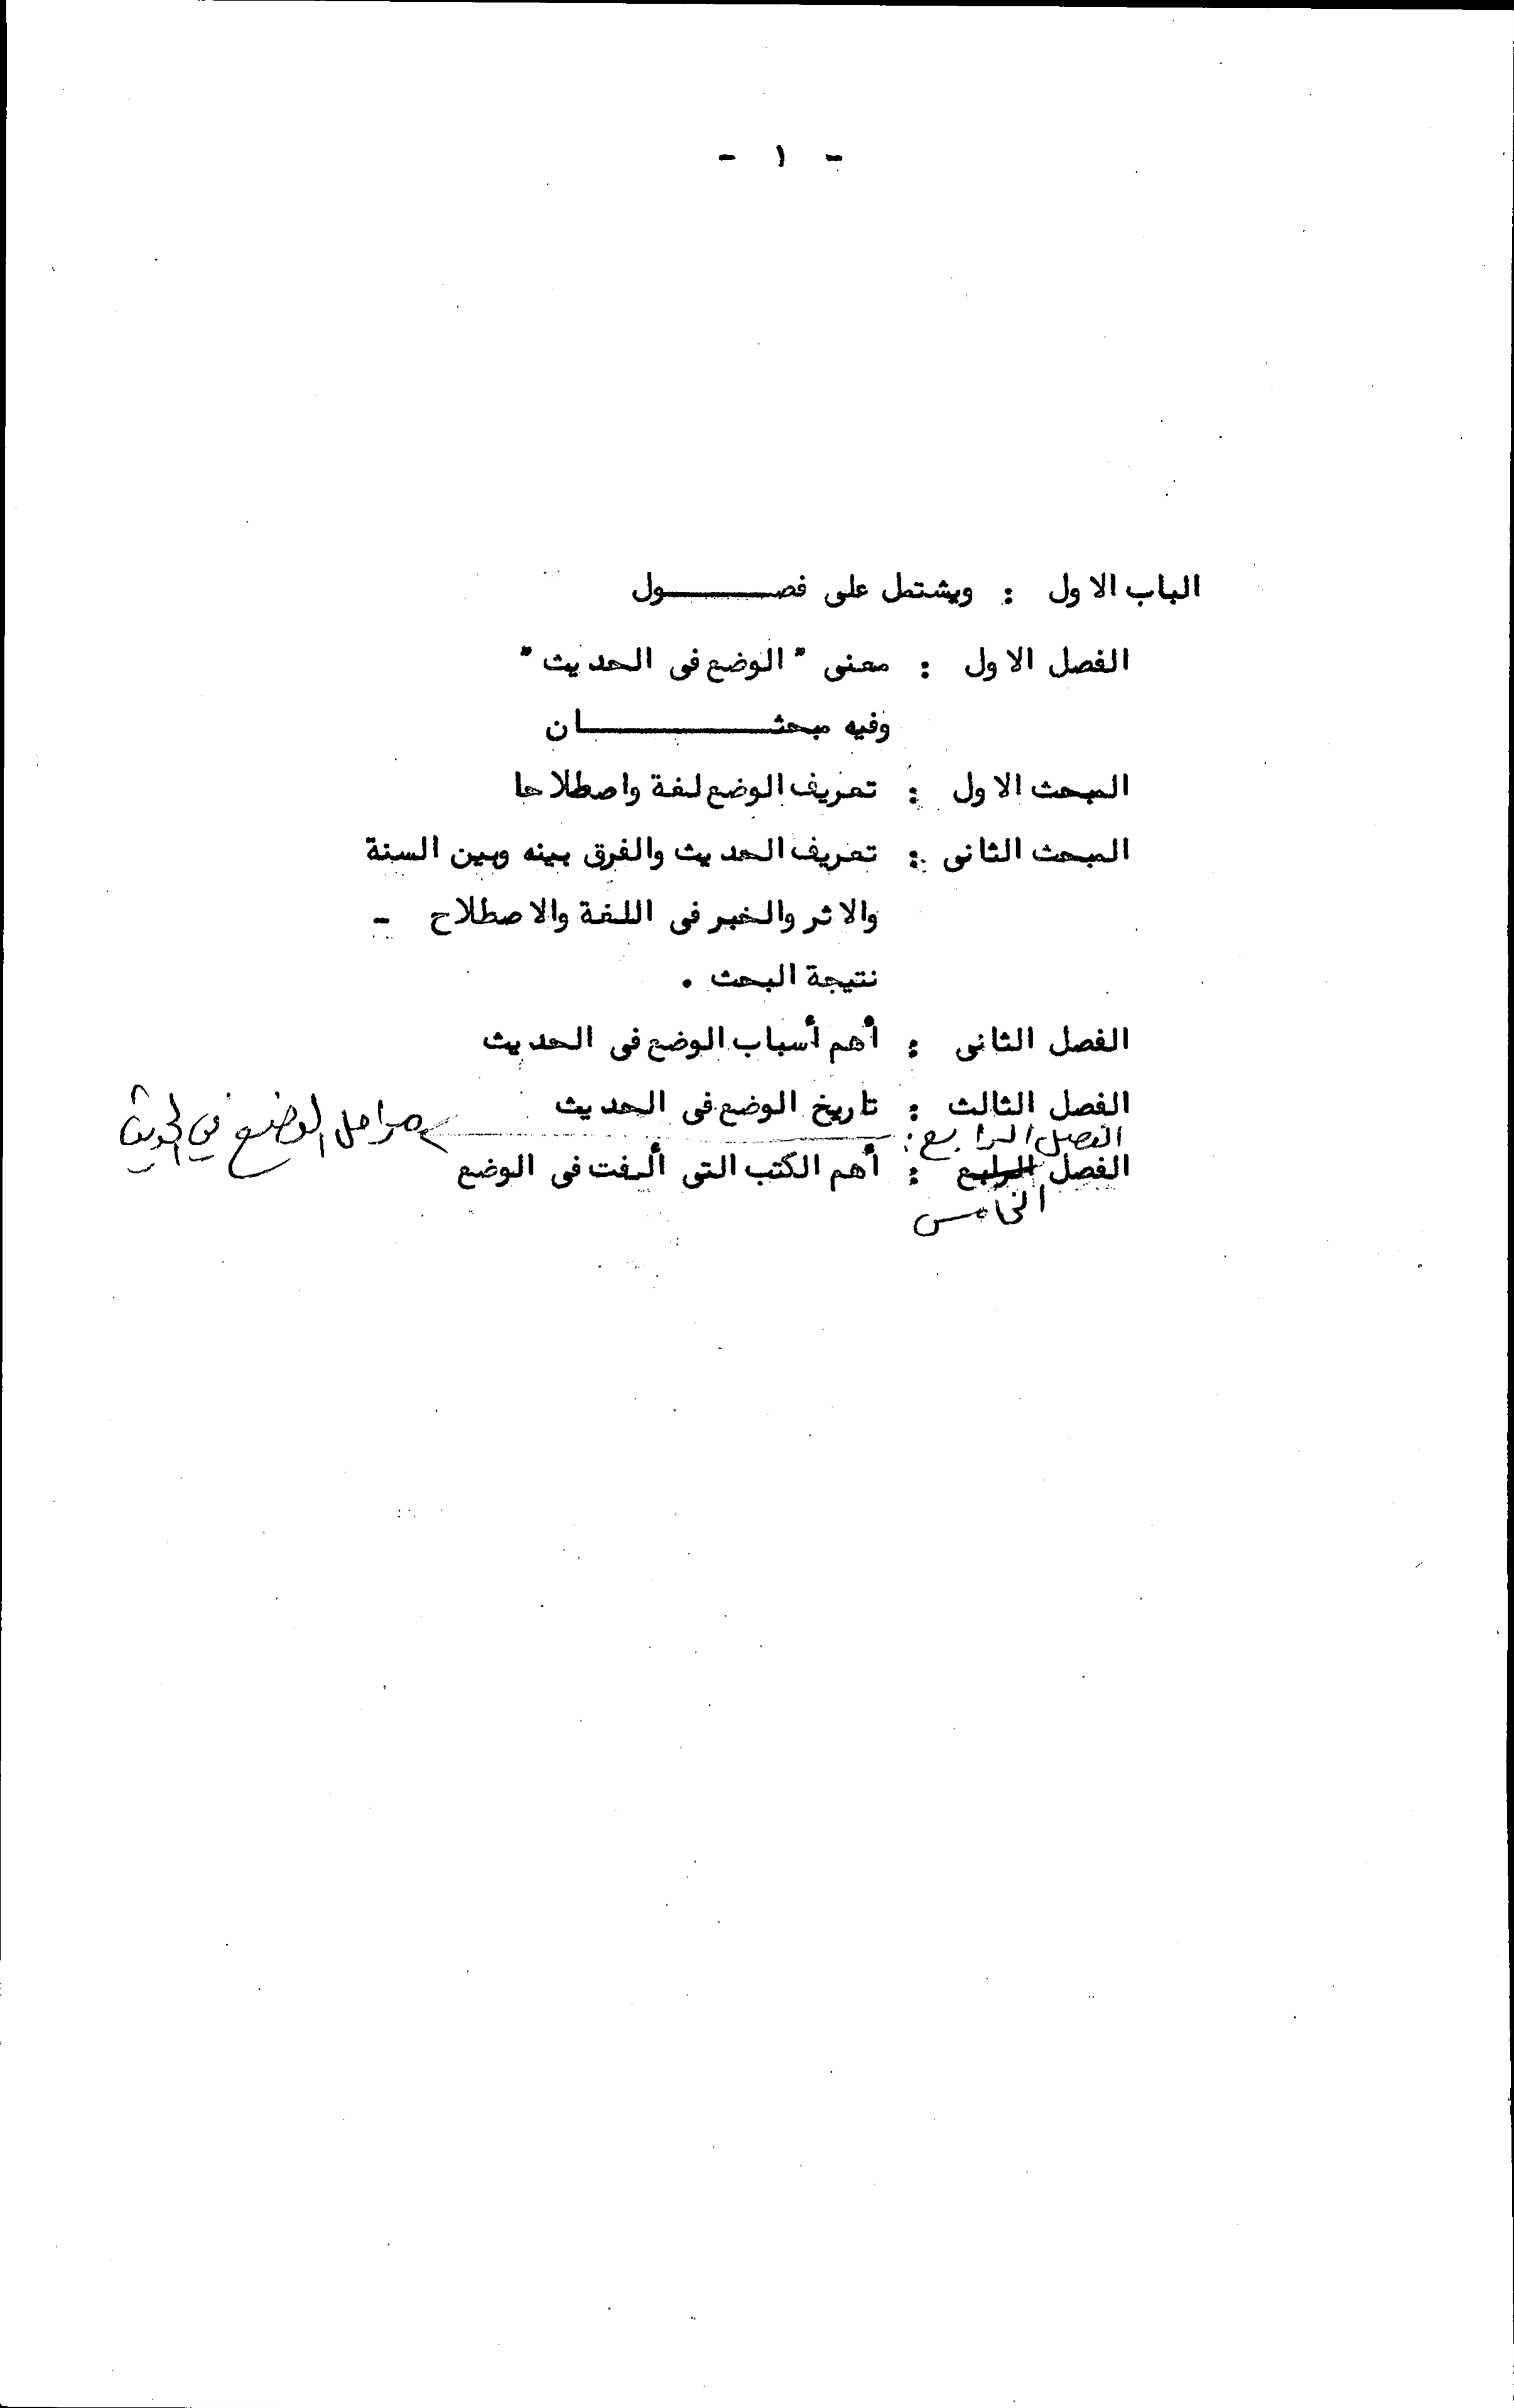 - ١ -
الباب الاول : ويشتمل على فصــــــول
الفصل الاول : معنى "الوضع فى الحديث"
وفيه مبحثــــــــــان
المبحث الاول : تعريف الوضع لغة واصطلاحا
المبحث الثانى : تعريف الحديث والفرق بينه وبين السنة
والاثر والخبر فى اللغة والاصطلاح -
نتيجة البحث .
الفصل الثانى : أهم أسباب الوضع فى الحديث
الفصل الثالث : تاريخ الوضع فى الحديث
الفصل الرابع : مراحل الوضع في الحديث
الفصل الرابع : أهم الكتب التى ألفت فى الوضع
الخامس